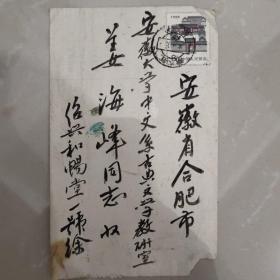 安徽省合肥市
安徽大学中文系古典文学教研室
姜海峰同志收
绍兴和畅堂一号徐